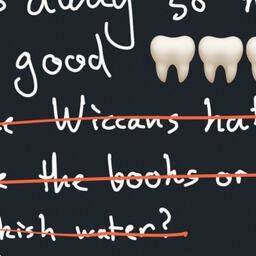 away so
good 🦷🦷🦷
Wiccans hat
the books or
kish water?